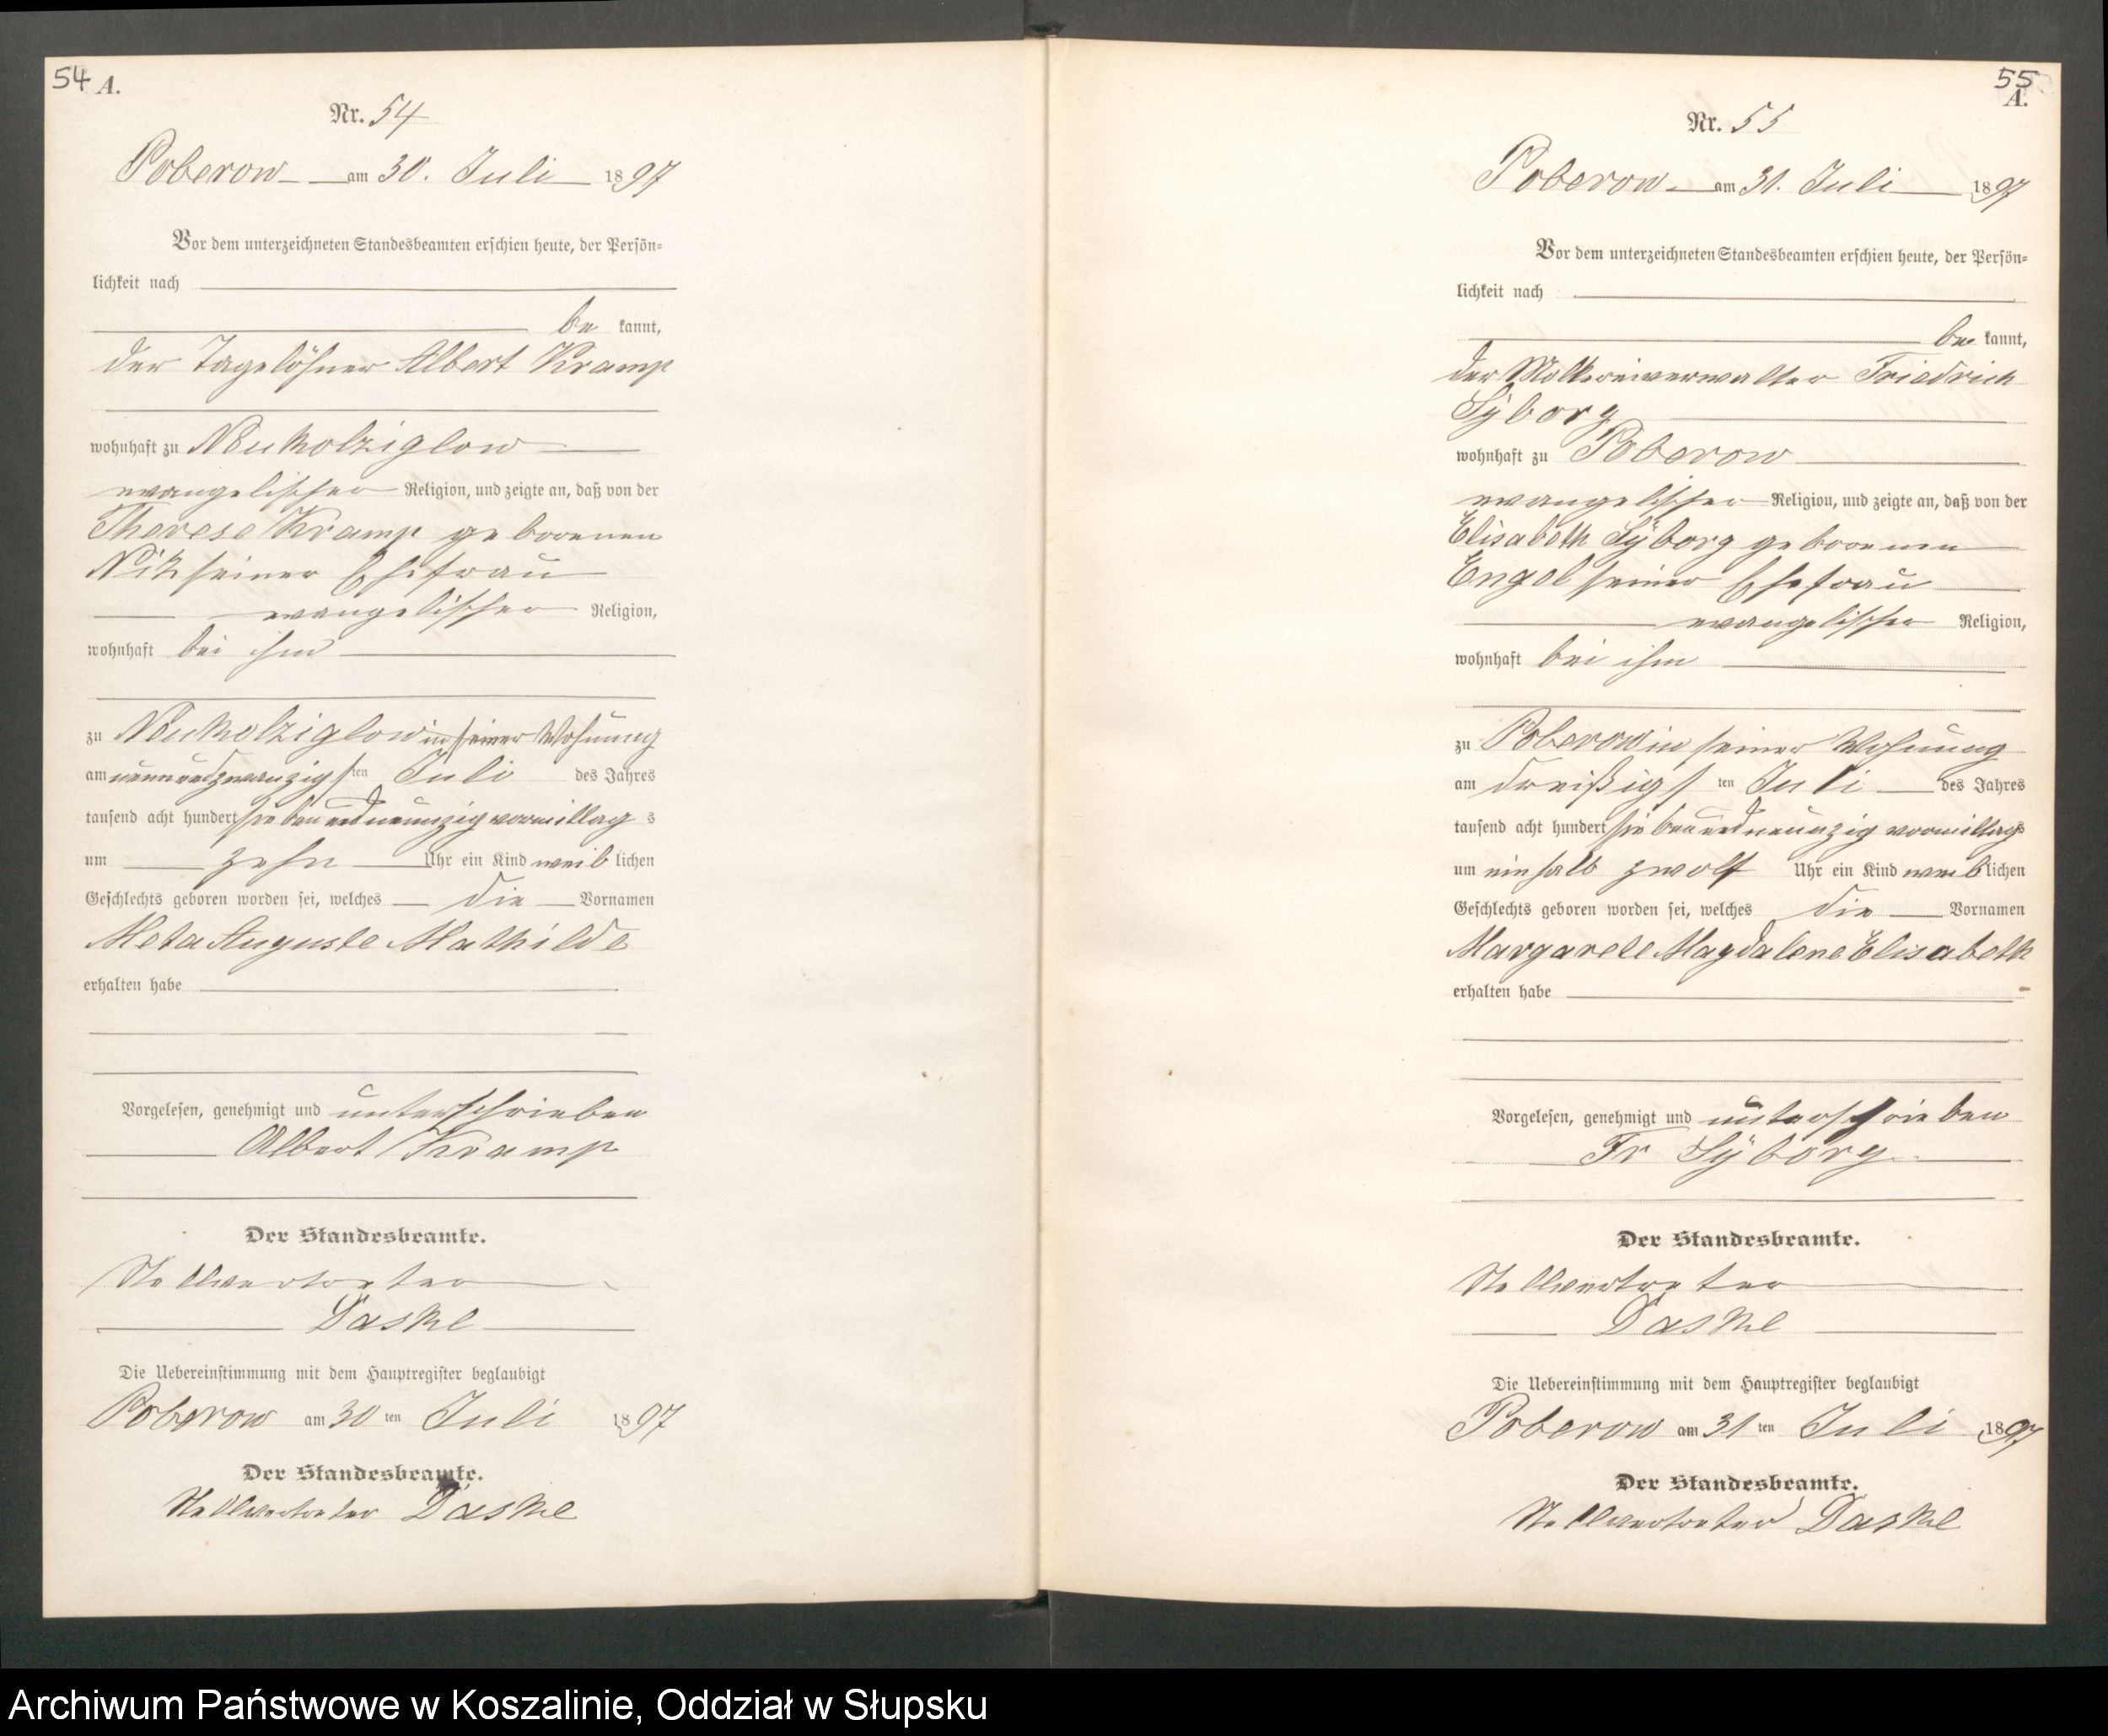 54 A.
Nr. 54
Poberow am 30. Juli 1897
Vor dem unterzeichneten Standesbeamten erschien heute, der Persön-
lichkeit nach
be kannt,
der Tagelöhner Albert Kramp
wohnhaft zu Neukolziglow
evangelischer Religion, und zeigte an, daß von der
Therese Kramp geborenen
Pik seiner Ehefrau
evangelischer Religion,
wohnhaft bei ihm
zu Neukolziglow in seiner Wohnung
am neunundzwanzigsten Juli des Jahres
tausend acht hundert siebenundneunzig vormittags
um zehn Uhr ein Kind weiblichen
Geschlechts geboren worden sei, welches die Vornamen
Meta Auguste Mathilde
erhalten habe
Vorgelesen, genehmigt und unterschrieben
Albert Kramp
Der Standesbeamte.
Stellvertreter
Daske
Die Uebereinstimmung mit dem Hauptregister beglaubigt
Poberow am 30 ten Juli 1897
Der Standesbeamte.
Stellvertreter Daske
55
A.
Nr. 55
Poberow am 31. Juli 1897
Vor dem unterzeichneten Standesbeamten erschien heute, der Persön-
lichkeit nach
be kannt,
der Molkereiverwalter Friedrich
Syborg
wohnhaft zu Poberow
evangelischer Religion, und zeigte an, daß von der
Elisabeth Syborg geborenen
Engel seiner Ehefrau
evangelischer Religion,
wohnhaft bei ihm
zu Poberow in seiner Wohnung
am dreißigsten Juli des Jahres
tausend acht hundert siebenundneunzig vormittags
um einhalb zwölf Uhr ein Kind weiblichen
Geschlechts geboren worden sei, welches die Vornamen
Margarete Magdalene Elisabeth
erhalten habe
Vorgelesen, genehmigt und unterschrieben
Fr Syborg
Der Standesbeamte.
Stellvertreter
Daske
Die Uebereinstimmung mit dem Hauptregister beglaubigt
Poberow am 31 ten Juli 1897
Der Standesbeamte.
Stellvertreter Daske
Archiwum Państwowe w Koszalinie, Oddział w Słupsku